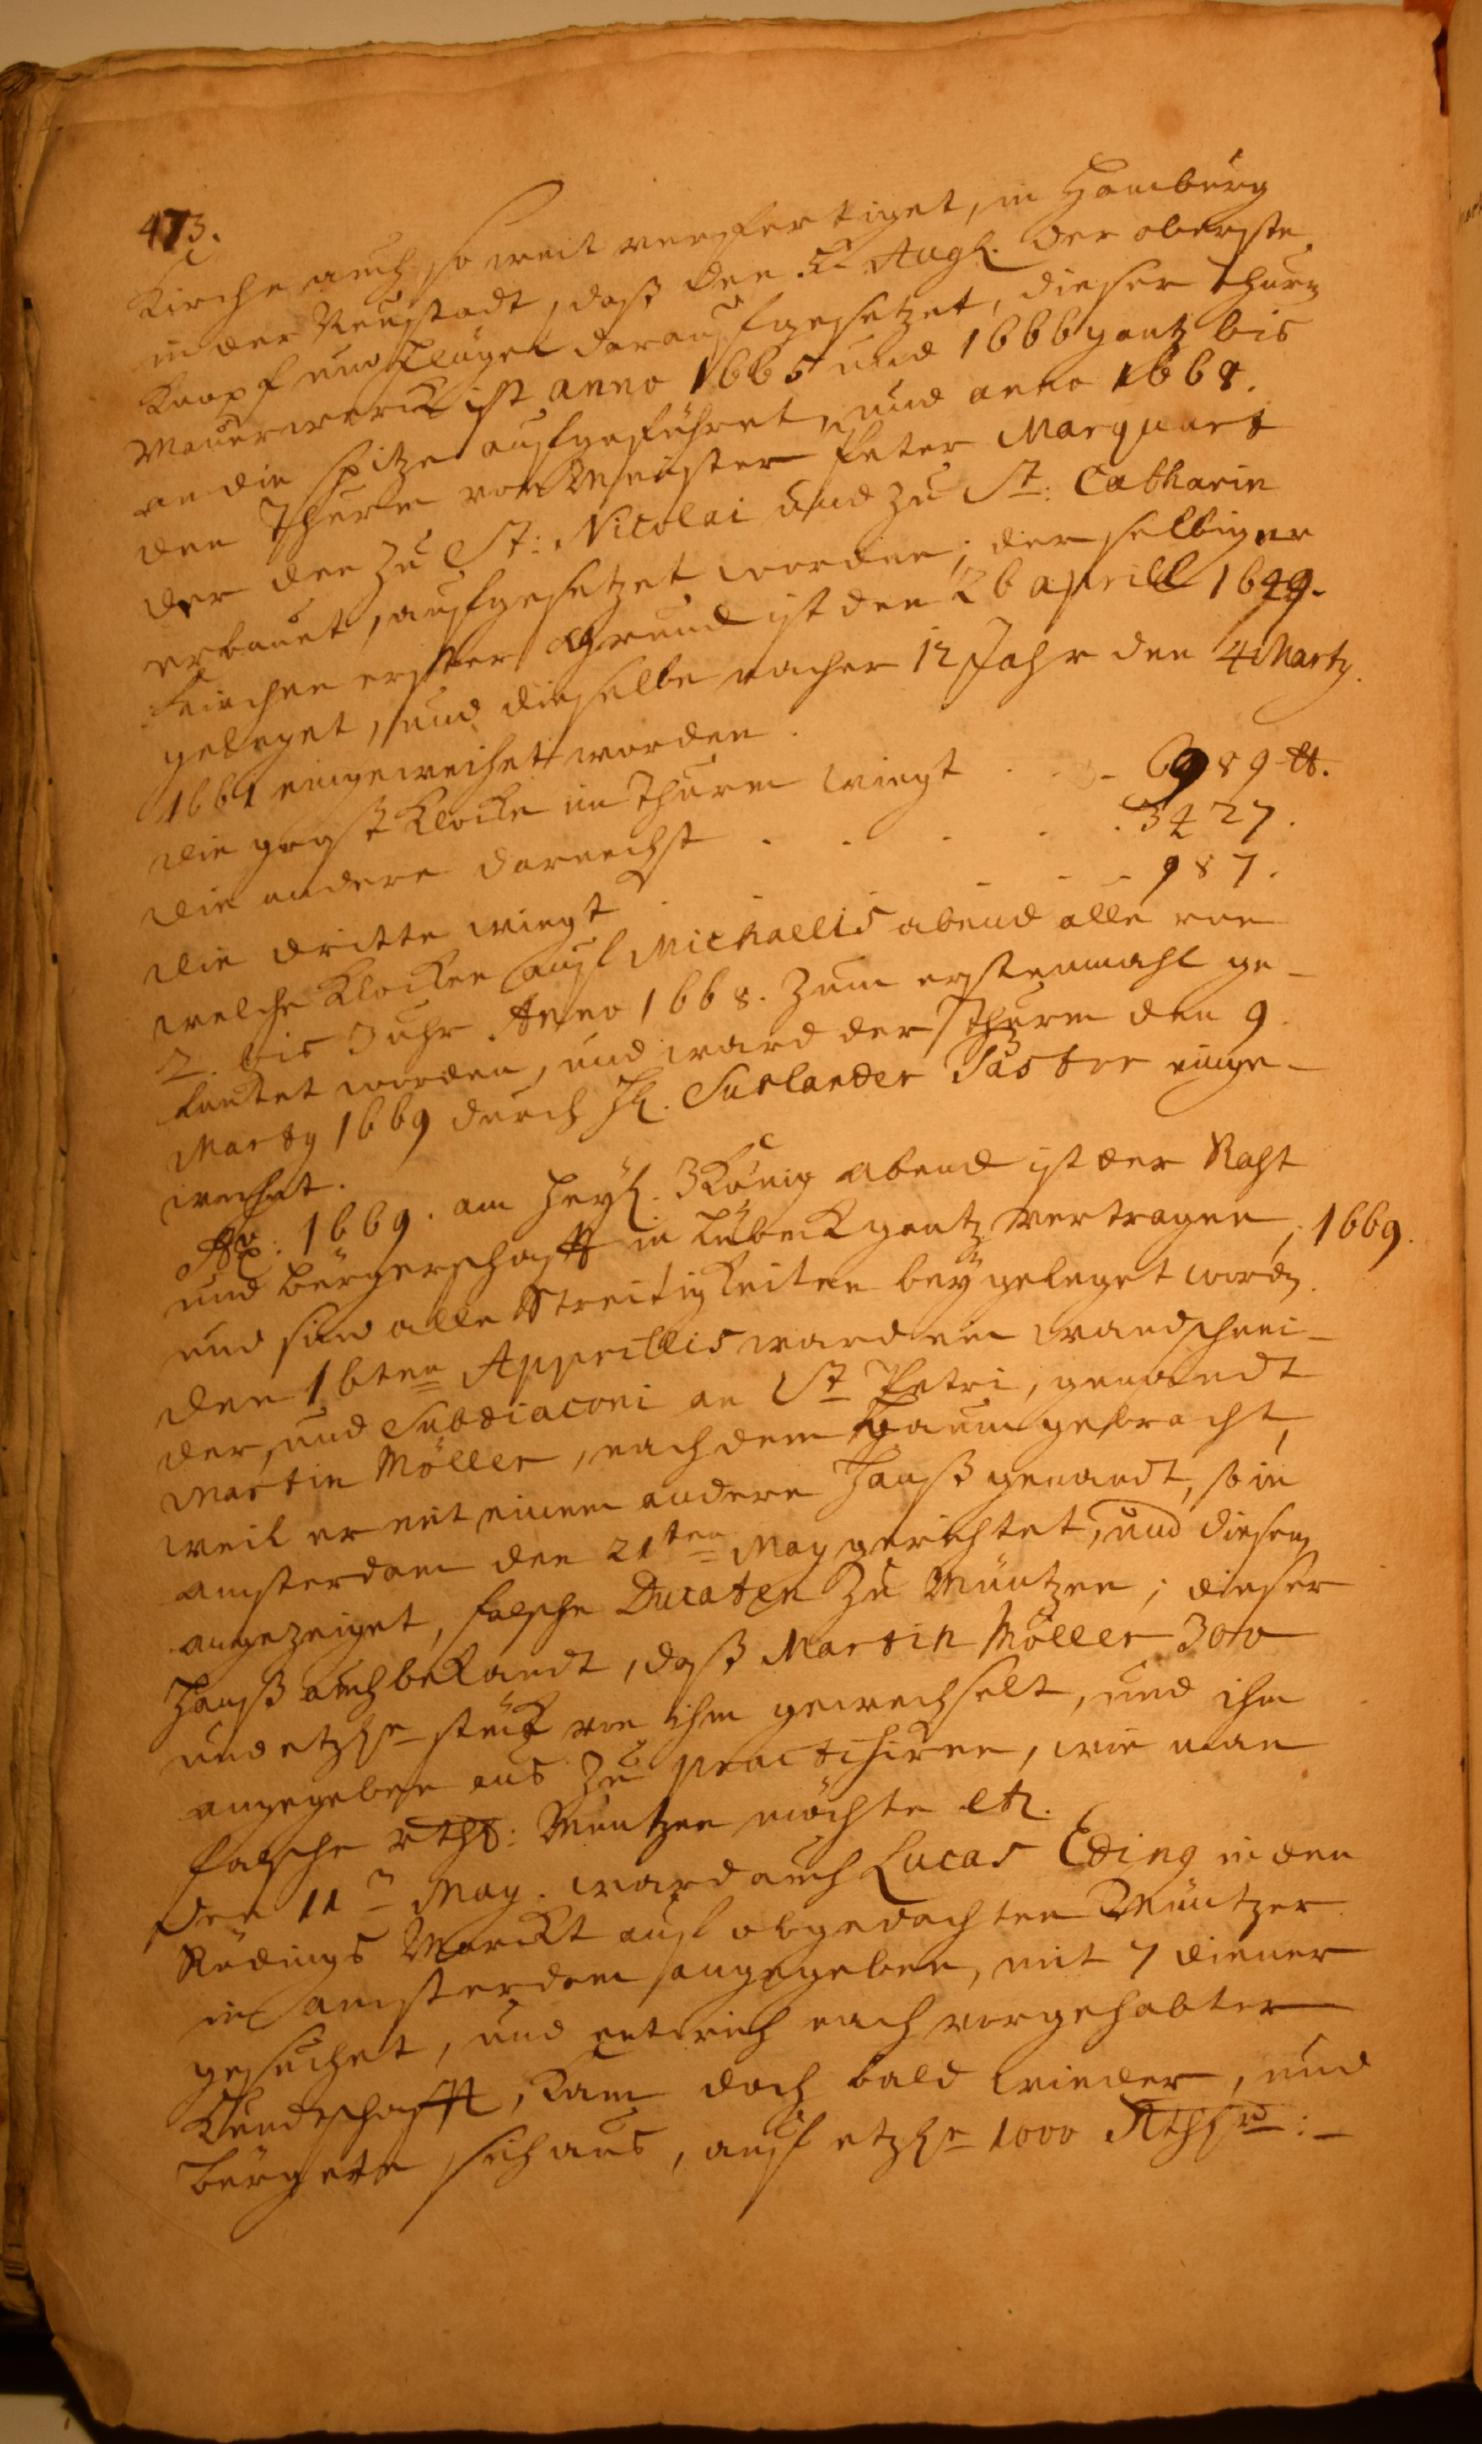 473.
Kirche auch so weit verfertiget, in Hamburg
in der Neustadt, daß den 5 Aug. der oberste
Knopf und Flügel darauf gesetzet, dieser Thurn
Mauerwerck ist anno 1665 und 1666 gantz bis
an die Spitze aufgeführet, und anno 1668.
den Thurm von Meister Peter Marquart
der den zu St: Nicolai und zu St: Catharin
erbauet, aufgesetzet worden; der selbigen
Kirchen erster Grund ist den 26 aprill 1649.
geleget, und dieselbe nacher 12 Jahr den 4 Marty.
1661 eingeweihet worden.
Die groß Klocke im Thurm wiegt . . - 6989 ℔.
Die andere darnechst . . . . . 3427.
Die dritte wiegt . - - - 987.
welche Klocken auf Michaelis abend alle von
2. bis 3 uhr Anno 1668. zum erstenmahl ge-
leutet worden, und ward der Thurm den 9
Marty 1669 durch H. Surlander Pastor einge-
weihet.
Ao: 1669. am heyl. 3 König abend ist der Raht
und bürgerschafft in Lübeck gantz vertragen, 1669.
und sind alle Streitigkeiten beygeleget word.
Den 16ten Apprillis ward ein wandschnei-
der, und Subdiaconi an St Petri, genandt
Martin Möller, nach dem gebracht,
weil er mit einem andern Hanß genandt, so in
amsterdam den 21ten May gerichtet, und diesen
angezeiget, falsche Ducaten zu Müntzen; dieser
Hanß auch bekandt, daß Martin Möller 300
und etzl. stück von ihm gewechselt, und ihm
angegeben aus zu practisiren, wie man
falsche Rthl: Müntzen möchte etc.
Den 11 May. ward auch Lucas Eding in den
Rödings Marckt auf obgedachten Müntzer
in amsterdam angegeben, mit 7 diener
gesuchet, und entwich nach vorgehabter
Kundtschafft, kam doch bald wieder, und
bürgete sich aus, auf etzl. 1000 Rthl:-